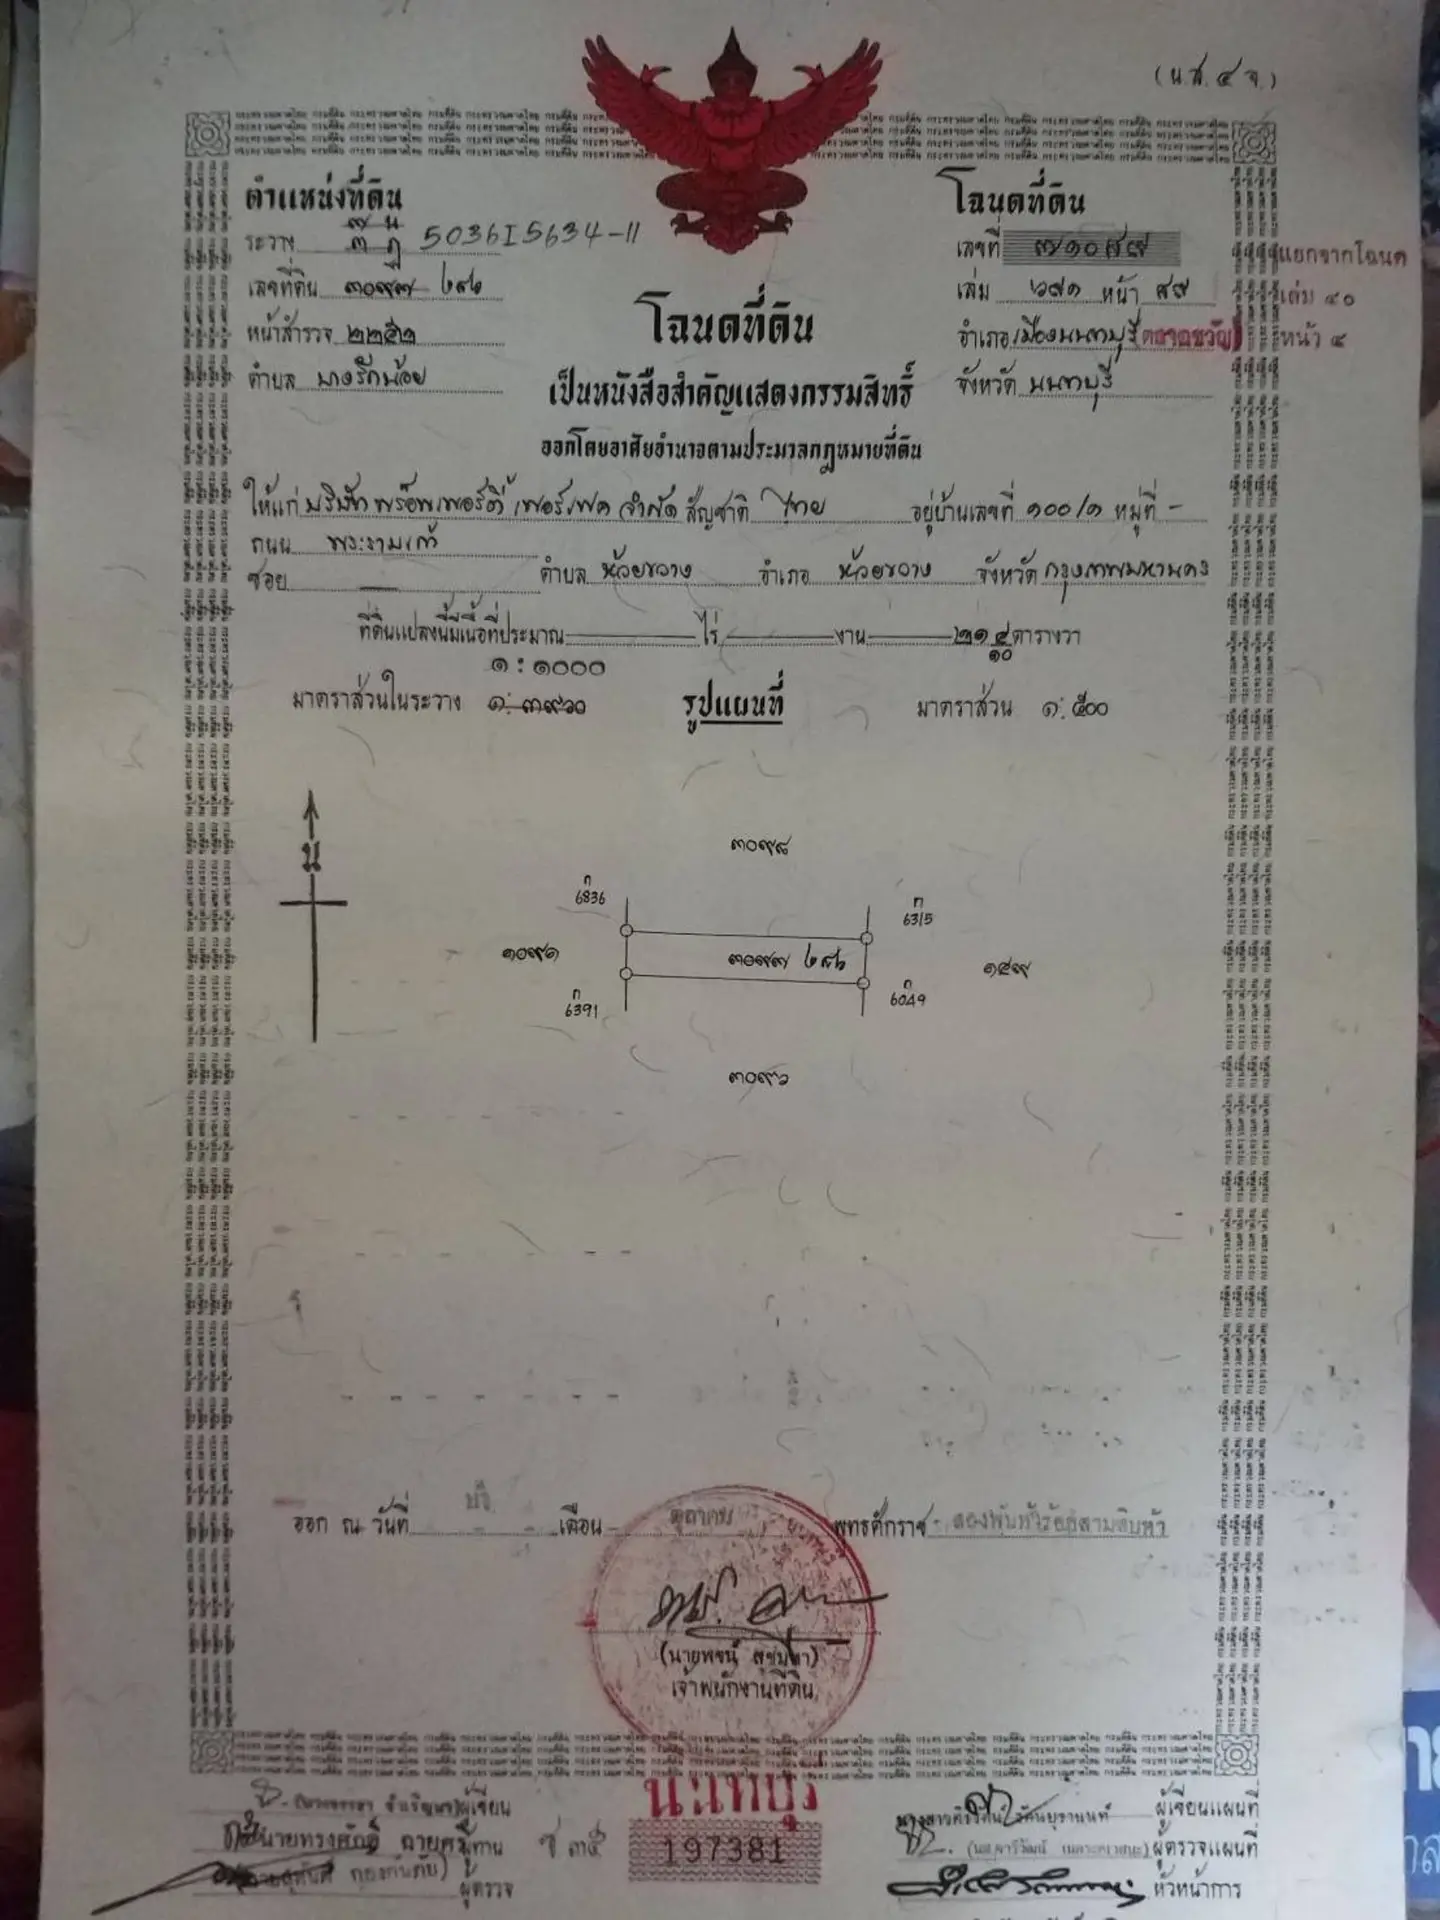 (น.ส. ๔ จ.)
ตำแหน่งที่ดิน
ระวาง 5036I5634-11
เลขที่ดิน ๓๐๙๗ ๒๘๖
หน้าสำรวจ ๒๒๕๒
ตำบล บางรักน้อย
โฉนดที่ดิน
เลขที่ ๗๑๐๘๙
เล่ม ๖๙๑ หน้า ๘๙
อำเภอ เมืองนนทบุรี(ตลาดขวัญ)
จังหวัด นนทบุรี
แยกจากโฉนด
เล่ม ๔๐
หน้า ๔
โฉนดที่ดิน
เป็นหนังสือสำคัญแสดงกรรมสิทธิ์
ออกโดยอาศัยอำนาจตามประมวลกฎหมายที่ดิน
ให้แก่ บริษัท พร็อพเพอร์ตี้ เพอร์เฟค จำกัด สัญชาติ ไทย อยู่บ้านเลขที่ ๑๐๐/๑ หมู่ที่ -
ถนน พระรามเก้า
ซอย — ตำบล ห้วยขวาง อำเภอ ห้วยขวาง จังหวัด กรุงเทพมหานคร
ที่ดินแปลงนี้มีเนื้อที่ประมาณ — ไร่ — งาน — ๒๑ ๔/๑๐ ตารางวา
๑ : ๑๐๐๐
มาตราส่วนในระวาง ๑:๓๙๖๐ รูปแผนที่ มาตราส่วน ๑:๕๐๐
น
๓๐๙๘
ก 6836
ก 6315
๑๐๙๑
๓๐๙๗ ๒๘๖
๑๔๙
ก 6391
ก 6049
๓๐๙๖
ออก ณ วันที่ เดือน ตุลาคม พุทธศักราช สองพันห้าร้อยสามสิบห้า
(นายพจน์
เจ้าพนักงานที่ดิน
ผู้เขียน
นายทรงศักดิ์ ลายศรี ผู้ทาน
ผู้ตรวจ
ช ๓๕
นนทบุรี
197381
ผู้เขียนแผนที่
ผู้ตรวจแผนที่
หัวหน้าการ